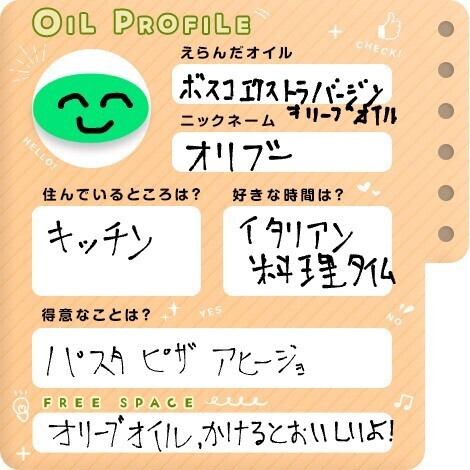 OIL PROFILE
CHECK!
えらんだオイル
ボスコエクストラバージン
オリーブオイル
HELLO!
ニックネーム
オリブー
住んでいるところは?
好きな時間は?
キッチン
イタリアン
料理タイム
得意なことは?
YES
NO
パスタ ピザ アヒージョ
FREE SPACE
オリーブオイル、かけるとおいしいよ!